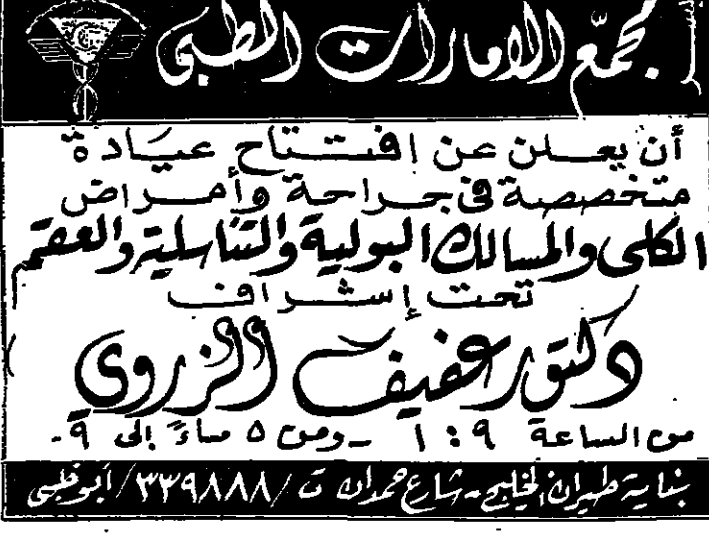 مجمّع الامارات الطبى
أن يعلن عن إفتتاح عيادة
متخصصة فى جراحة وأمراض
الكلى والمسالك البولية والتناسلية والعقم
تحت إشراف
دكتور عفيف الزروى
من الساعة ٩ : ١ - ومن ٥ مساءً إلى ٩ -
بناية طيران الخليج - شارع حمدان ت / ٣٣٩٨٨٨ / أبوظبى